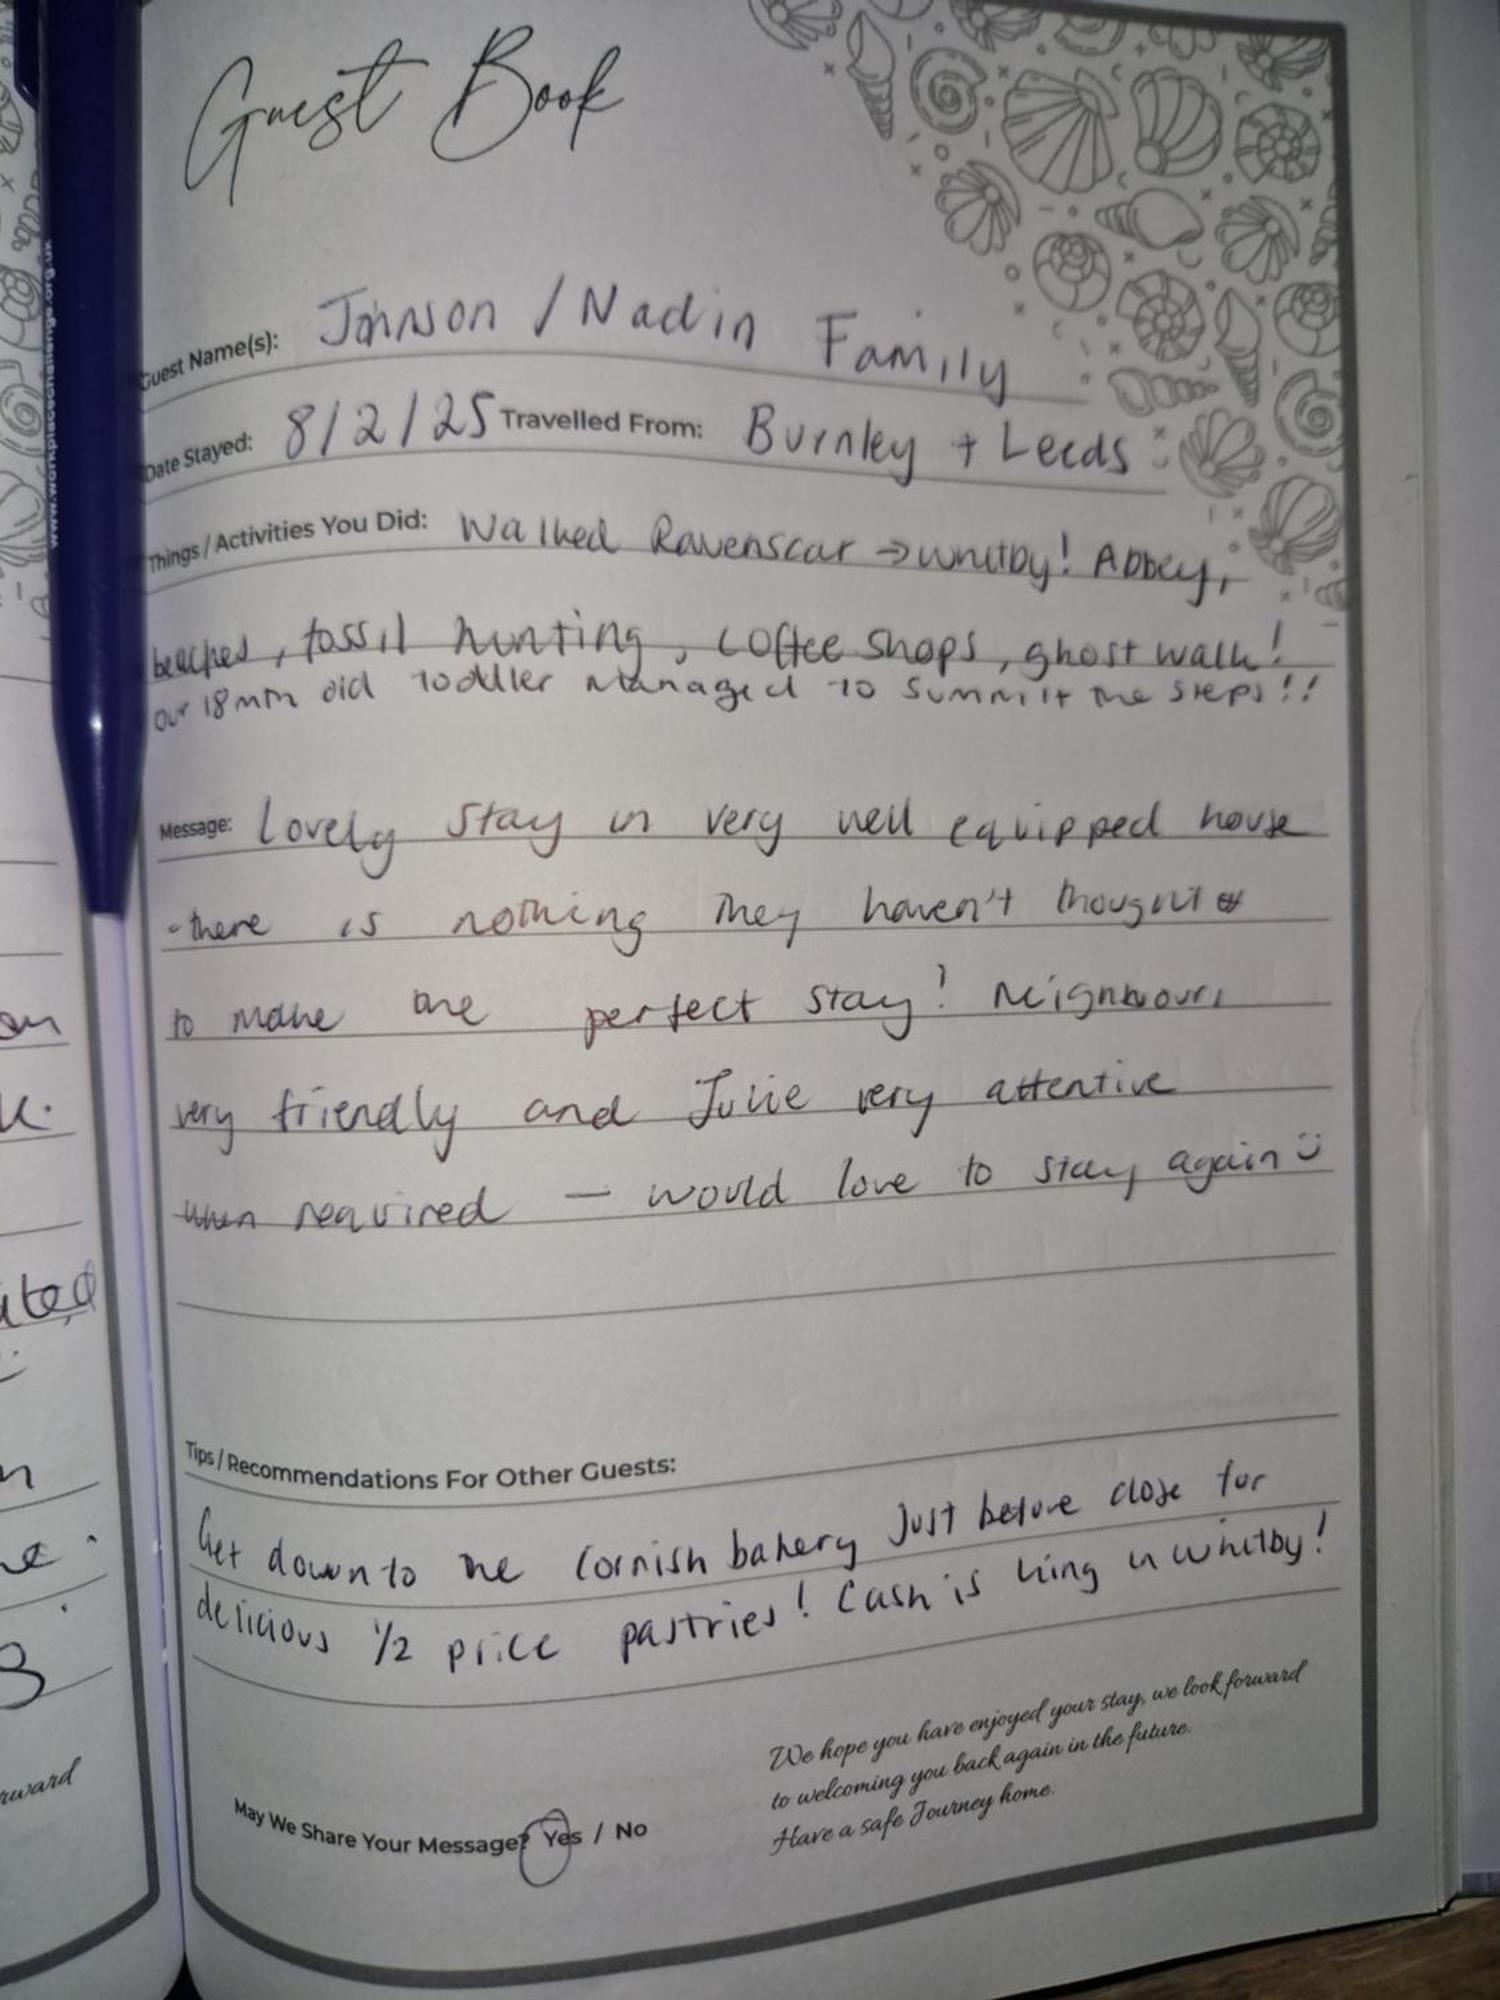 Guest Book
Guest Name(s): Johnson / Nadin Family
Date Stayed: 8/2/25 Travelled From: Burnley + Leeds
Things / Activities You Did: Walked Ravenscar → Whitby! Abbey,
beaches, fossil hunting, coffee shops, ghost walk!
our 18mth old toddler managed to summit the steps!!
Message: Lovely stay in very well equipped house
- there is nothing they haven't thought
to make the perfect stay! Neighbours
very friendly and Julie very attentive
when required — would love to stay again
Tips / Recommendations For Other Guests:
Get down to the Cornish bakery just before close for
delicious 1/2 price pastries! Cash is king in Whitby!
We hope you have enjoyed your stay, we look forward
to welcoming you back again in the future.
Have a safe Journey home.
May We Share Your Message? Yes / No
www.workplacechallenge.org.uk
rward